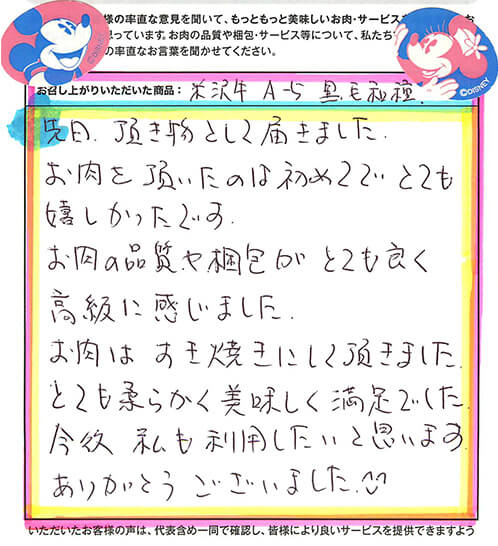 様の率直な意見を聞いて、もっともっと美味しいお肉・サービスを
っています。お肉の品質や梱包・サービス等について、私たち
の率直なお言葉を聞かせてください。
©DISNEY
©DISNEY
お召し上がりいただいた商品： 米沢牛 A-5 黒毛和種.
先日、頂き物として届きました.
お肉を頂いたのは初めてで とても
嬉しかったです.
お肉の品質や梱包が とても良く
高級に感じました.
お肉は すき焼きにして頂きました.
とても柔らかく美味しく満足でした.
今後 私も利用したいと思います.
ありがとう ございました.
いただいたお客様の声は、代表含め一同で確認し、皆様により良いサービスを提供できますよう